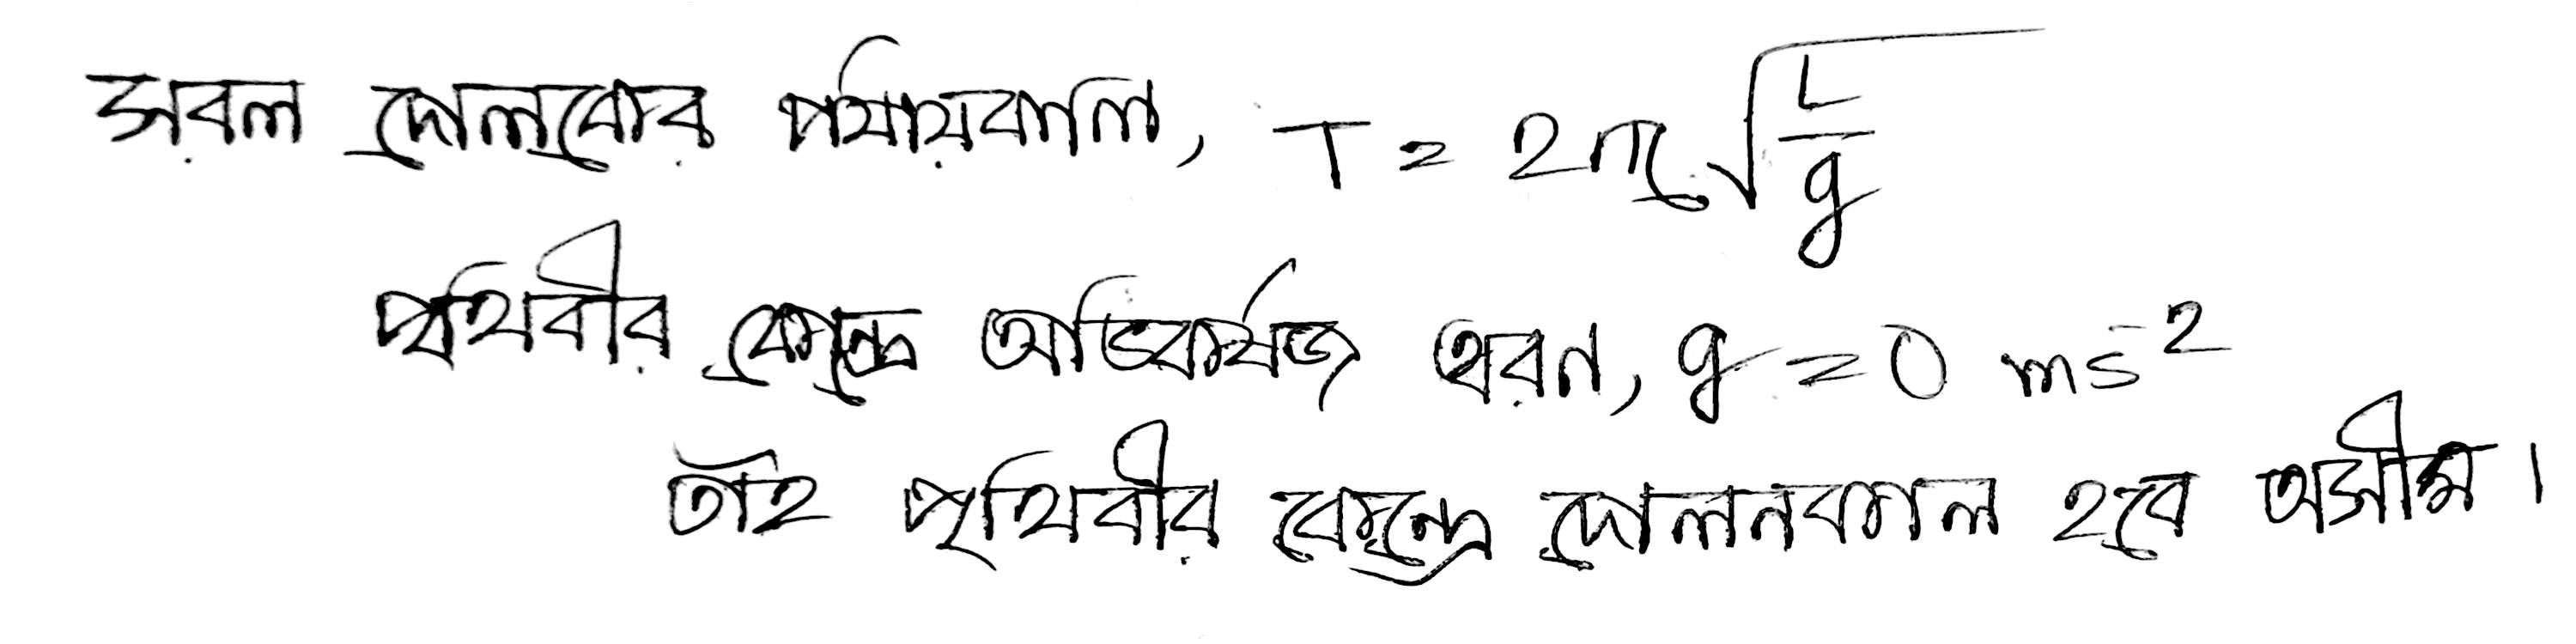 সরল দোলকের পর্যায়কাল, T = 2π√(L/g)
পৃথিবীর কেন্দ্রে অভিকর্ষজ ত্বরণ, g = 0 ms⁻²
তাই পৃথিবীর কেন্দ্রে দোলনকাল হবে অসীম।